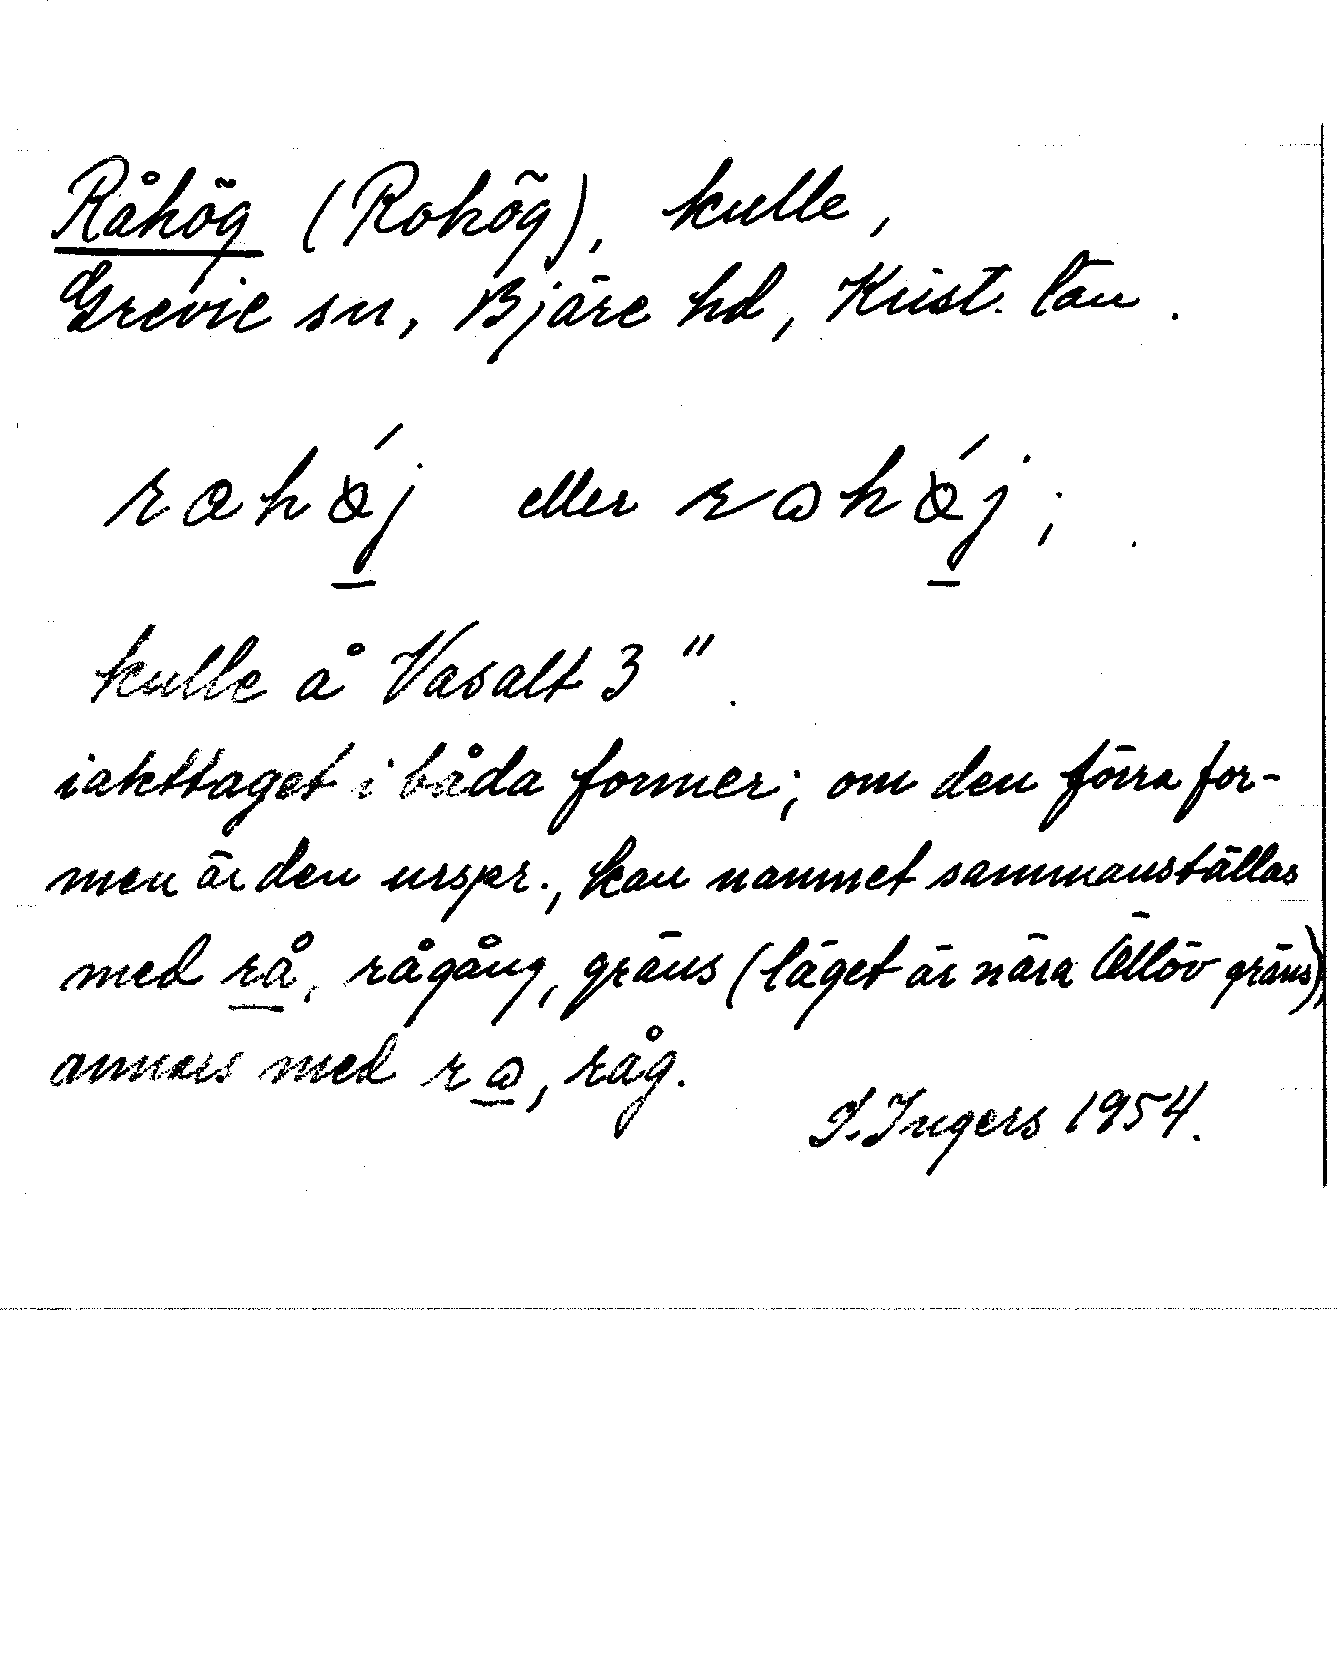 Råhög (Rohög), kulle,
Grevie sn, Bjäre hd, Krist. län.
rɑhǿj eller rɷhǿj;
kulle å Vasalt 3".
iakttaget i båda former; om den förra for-
men är den urspr., kan namnet sammanställas
med rå, rågång, gräns (läget är nära Ö. Ellöv gräns),
annars med rɷ, råg.
I. Ingers 1954.